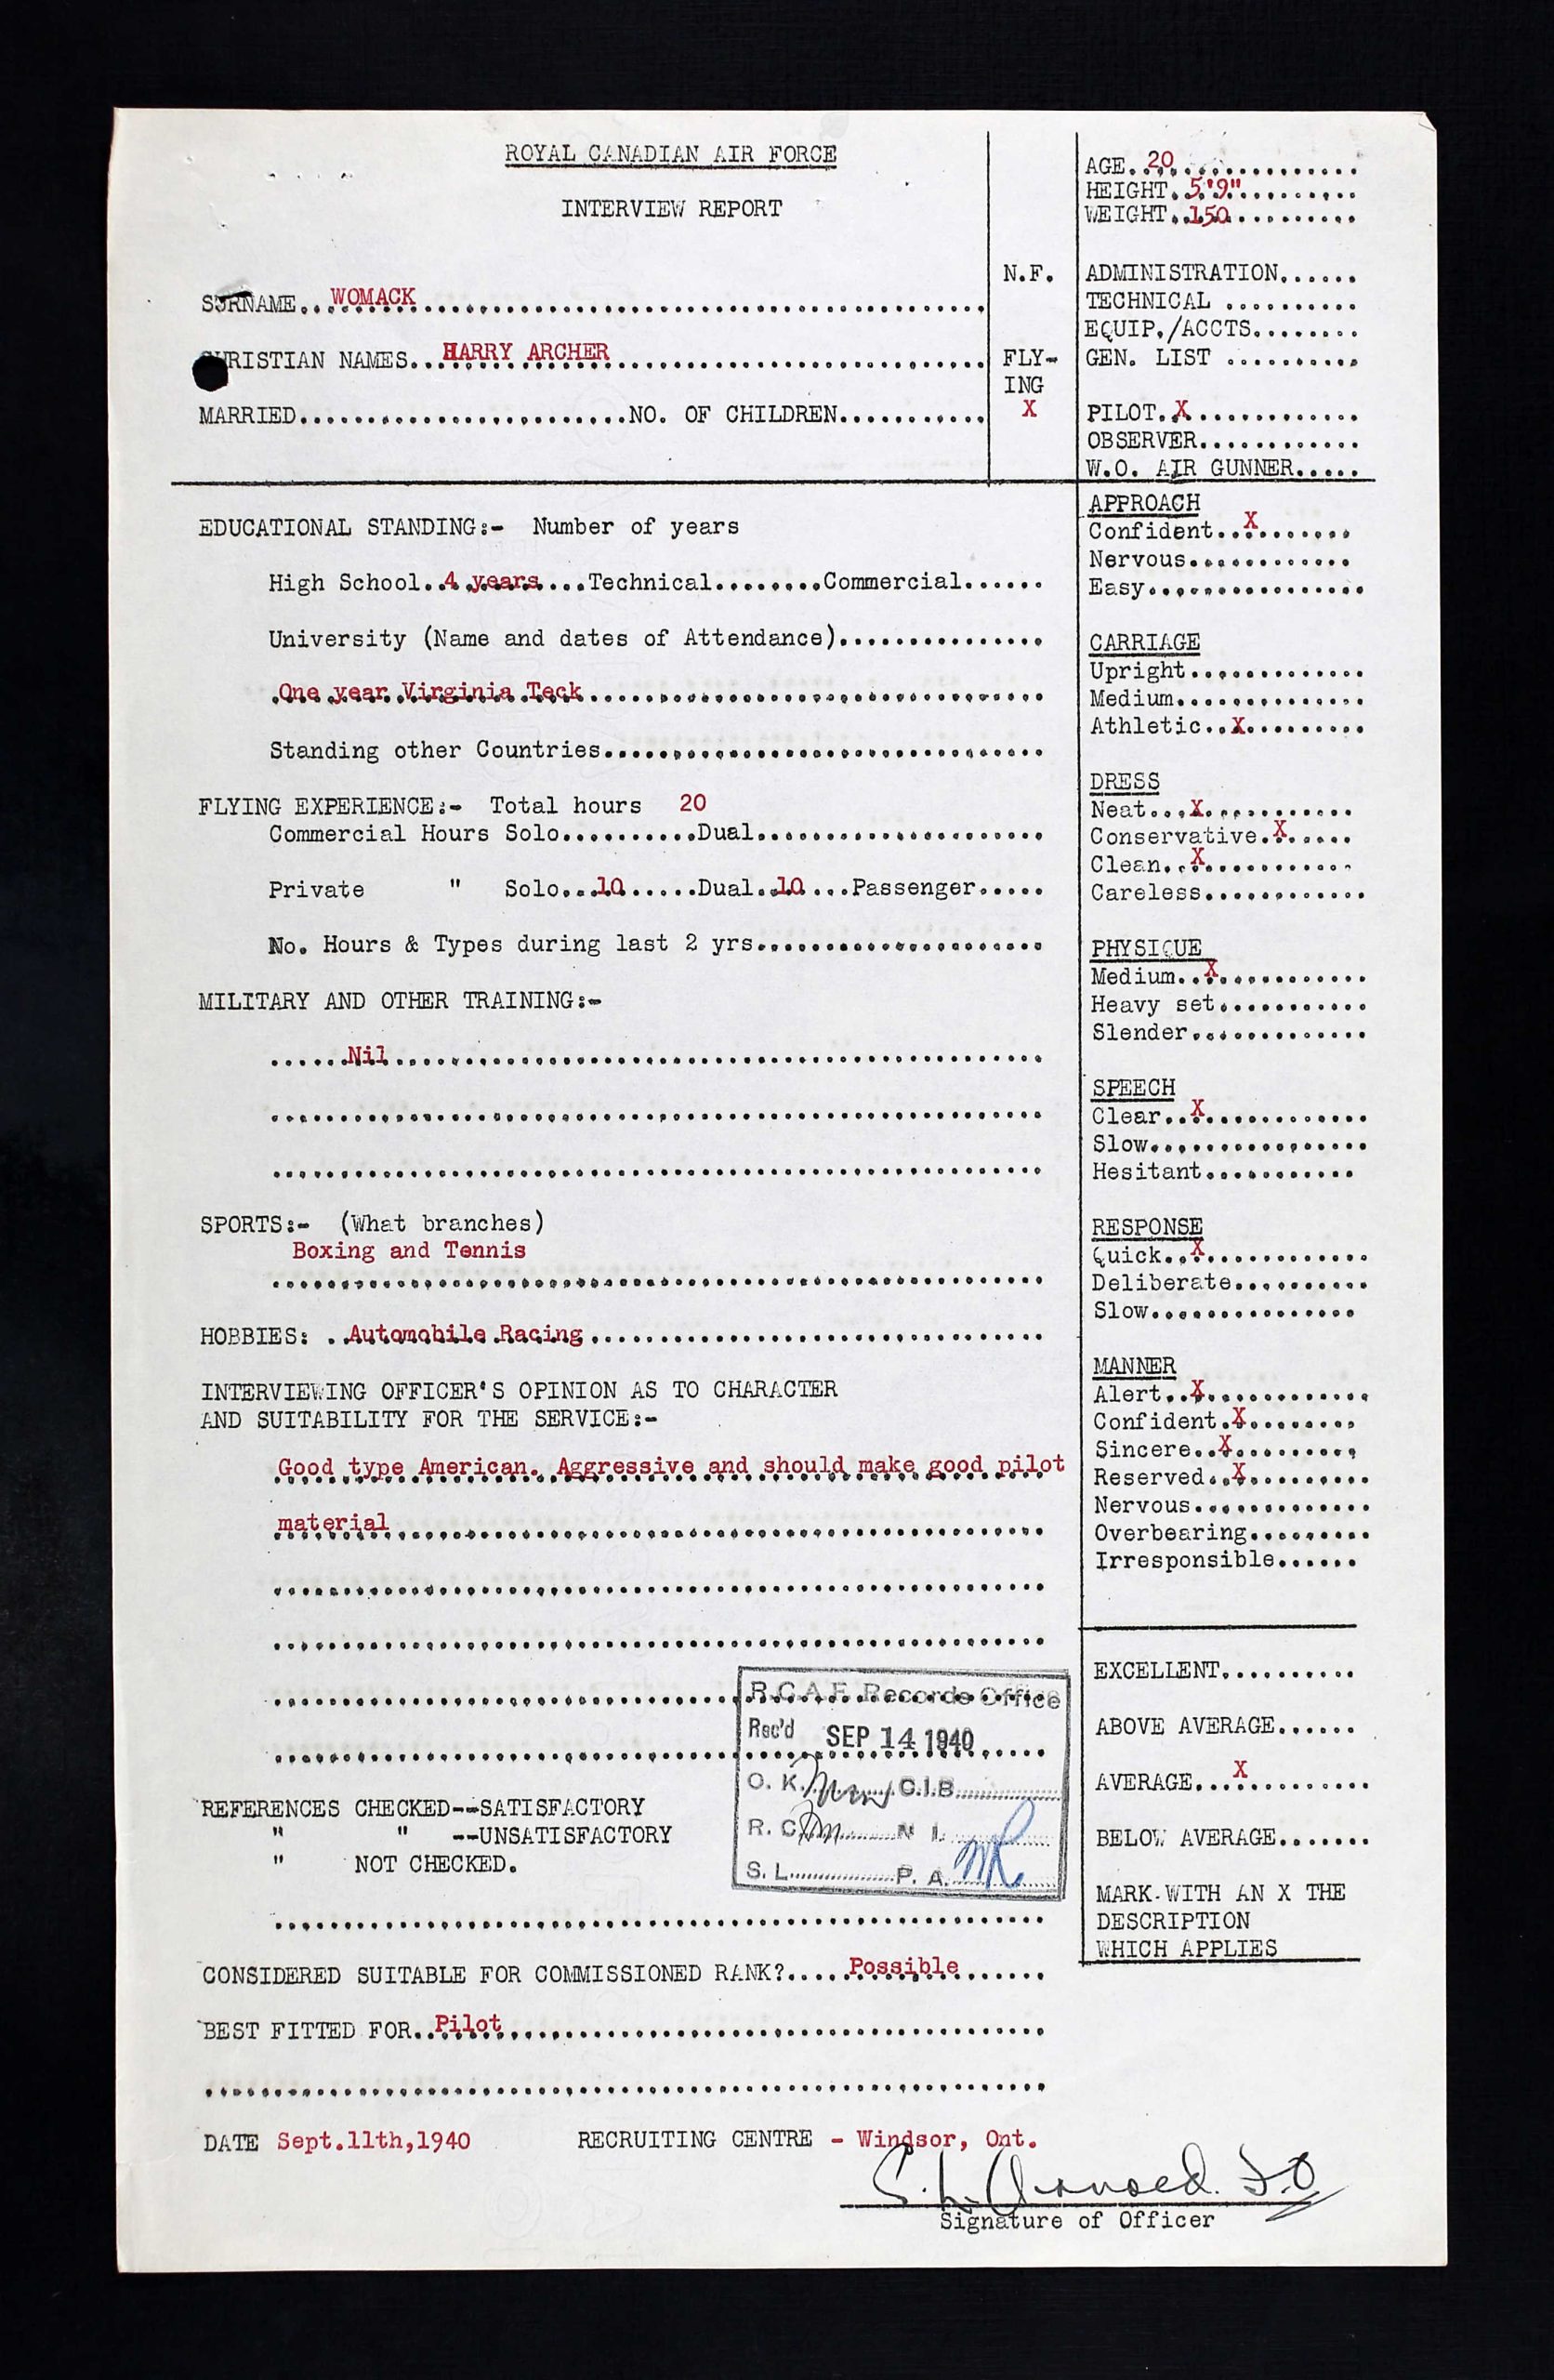 ROYAL CANADIAN AIR FORCE
INTERVIEW REPORT
SURNAME.. WOMACK
CHRISTIAN NAMES.. HARRY ARCHER
MARRIED..........NO. OF CHILDREN..........
N.F.
FLY-
ING
X
AGE. 20
HEIGHT. 5'9"
WEIGHT. 150
ADMINISTRATION......
TECHNICAL ..........
EQUIP./ACCTS........
GEN. LIST ..........
PILOT. X
OBSERVER............
W.O. AIR GUNNER.....
EDUCATIONAL STANDING:- Number of years
High School..4 years....Technical........Commercial......
University (Name and dates of Attendance)...............
One year Virginia Teck
Standing other Countries...............
FLYING EXPERIENCE:- Total hours 20
Commercial Hours Solo..........Dual..........
Private " Solo...10......Dual..10....Passenger.....
No. Hours & Types during last 2 yrs..........
MILITARY AND OTHER TRAINING:-
......Nil..........
SPORTS:- (What branches)
Boxing and Tennis
HOBBIES: ..Automobile Racing..........
INTERVIEWING OFFICER'S OPINION AS TO CHARACTER
AND SUITABILITY FOR THE SERVICE:-
Good type American. Aggressive and should make good pilot
material
R.C.A.F. Records Office
Rec'd SEP 14 1940
O. K. C.I.B.
R. C. N. I.
S. L. P. A.
REFERENCES CHECKED--SATISFACTORY
" " --UNSATISFACTORY
" NOT CHECKED.
CONSIDERED SUITABLE FOR COMMISSIONED RANK?.....Possible......
BEST FITTED FOR..Pilot..........
DATE Sept.11th,1940 RECRUITING CENTRE - Windsor, Ont.
Signature of Officer
APPROACH
Confident..X..........
Nervous............
Easy................
CARRIAGE
Upright.............
Medium..............
Athletic..X.........
DRESS
Neat...X...........
Conservative.X.....
Clean..X...........
Careless............
PHYSIQUE
Medium..X...........
Heavy set...........
Slender.............
SPEECH
Clear..X............
Slow................
Hesitant...........
RESPONSE
Quick..X............
Deliberate..........
Slow...............
MANNER
Alert..X............
Confident.X........
Sincere..X.........
Reserved..X.........
Nervous.............
Overbearing.........
Irresponsible......
EXCELLENT..........
ABOVE AVERAGE......
AVERAGE...X.........
BELOW AVERAGE.......
MARK WITH AN X THE
DESCRIPTION
WHICH APPLIES